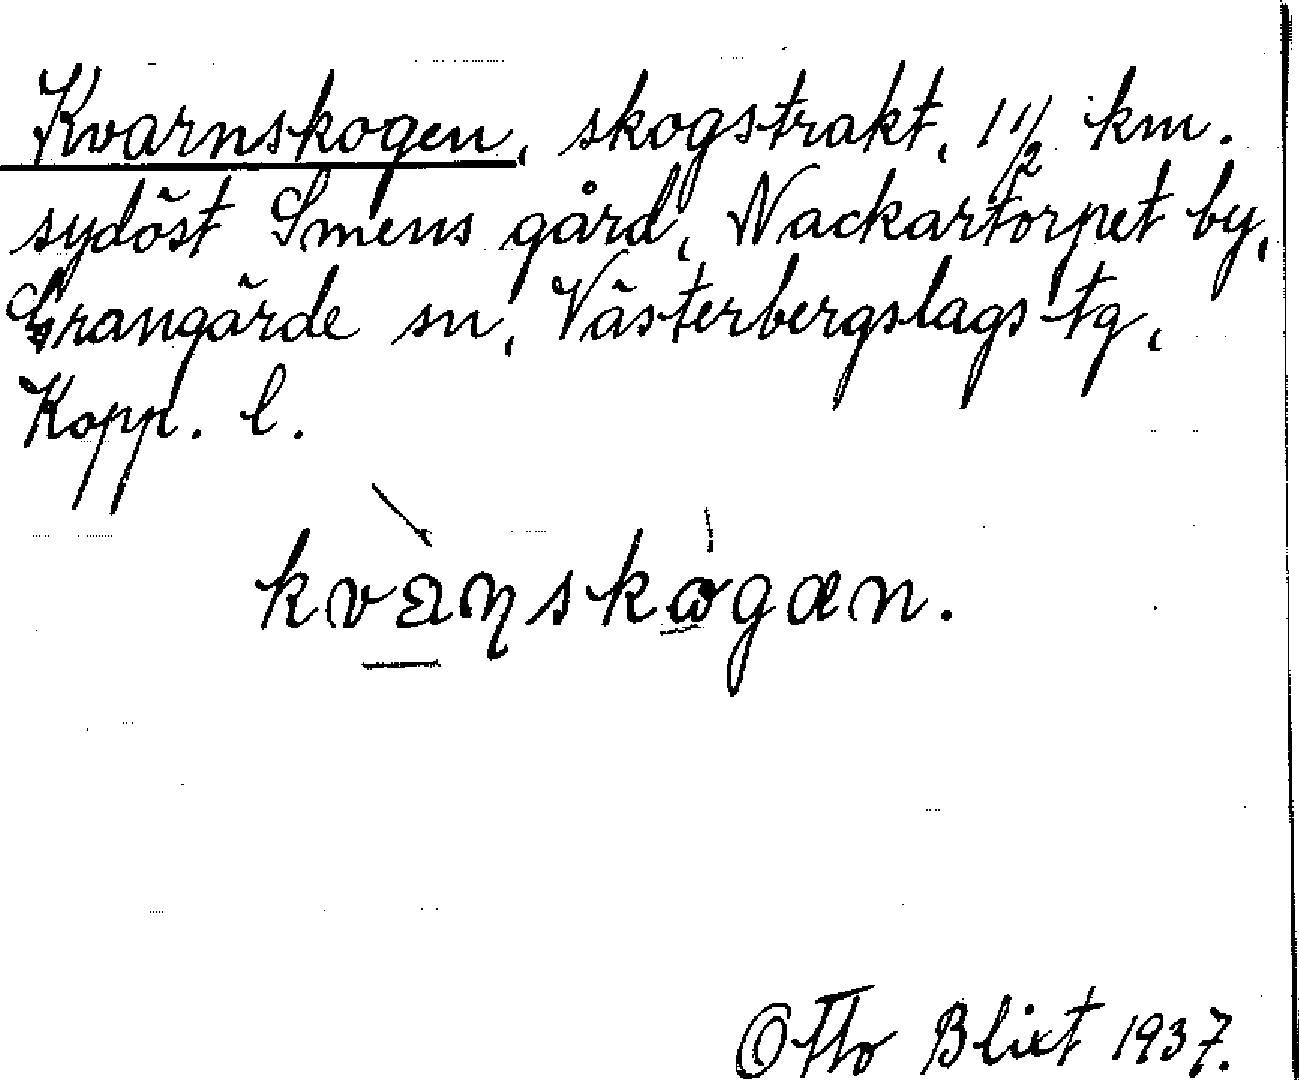 Kvarnskogen, skogstrakt, 1 1/2 km.
sydöst Smens gård, Nackartorpet by,
Grangärde sn, Västerbergslags tg,
Kopp. l.
Otto Blixt 1937.